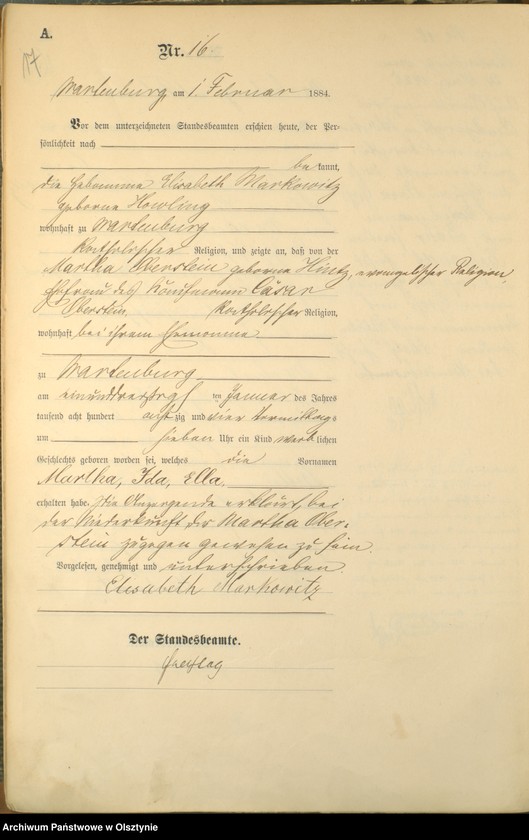 A.
17
Nr. 16
Wartenburg, am 1. Februar 1884.
Vor dem unterzeichneten Standesbeamten erschien heute, der Per-
sönlichkeit nach
be kannt,
die Hebamme Elisabeth Markowitz
geborne
wohnhaft zu Wartenburg
katholischer Religion, und zeigte an, daß von der
Martha Oberstein geborne Hintz, evangelischer Religion,
Ehefrau des Kaufmann Cäsar
Oberstein, katholischer Religion,
wohnhaft bei ihrem Ehemanne
zu Wartenburg
am einunddreißigsten Januar des Jahres
tausend acht hundert achtzig und vier Vormittags
um sieben Uhr ein Kind weiblichen
Geschlechts geboren worden sei, welches die Vornamen
Martha, Ida, Ella,
erhalten habe. Die Anzeigende erklärt, bei
der Niederkunft der Martha Ober-
stein zugegen gewesen zu sein.
Vorgelesen, genehmigt und unterschrieben.
Elisabeth Markowitz
Der Standesbeamte.
Freitag
Archiwum Państwowe w Olsztynie